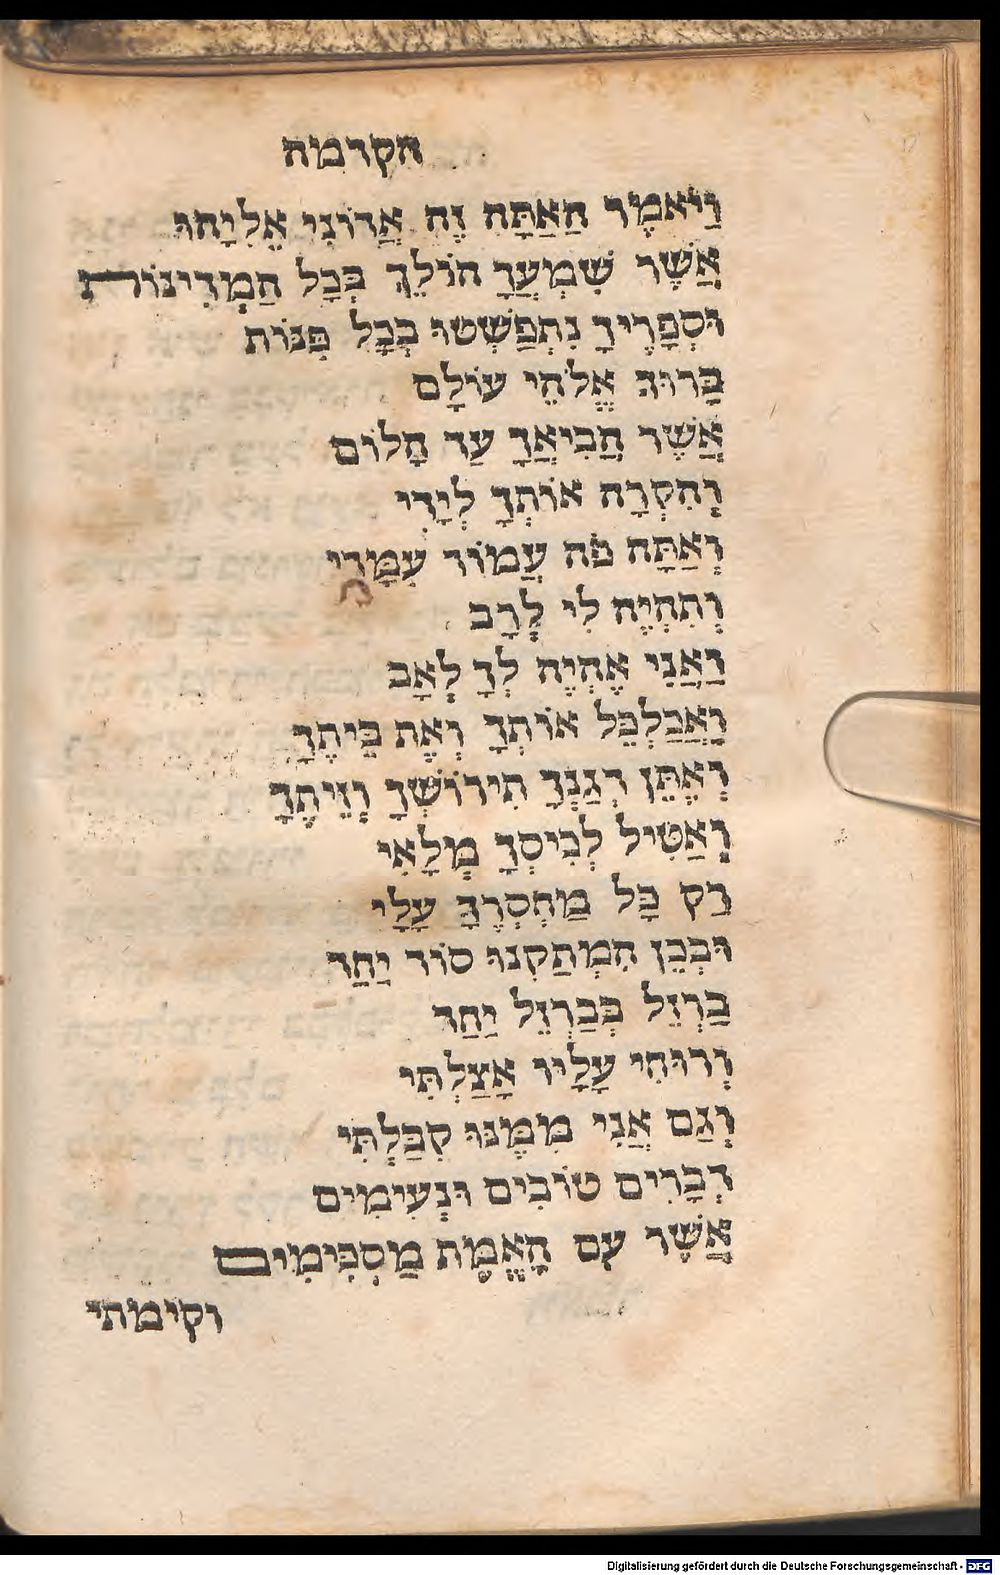 הקדמה
וַיֹאמֶר הַאַתָּה זֶה אֲדוֹנִי אֵלִיָהוּ
אֲשֶׁר שִׁמְעֲךָ הוֹלֵךְ בְּכָל הַמְדִינוֹת
וּסְפָרֶיךָ נִתְפַּשְׁטוּ בְּכָל פִּנּוֹת
בָּרוּךְ אֱלֹהֵי עוֹלָם
אֲשֶׁר הֲבִיאֲךָ עַד הֲלוֹם
וְהִקְרָה אוֹתְךָ לְיָדִי
וְאַתָּה פֹּה עֲמוֹד עִמָּדִי
וְתִהְיֶה לִי לְרָב
וַאֲנִי אֶהְיֶה לְךָ לְאָב
וַאֲכַלְכֵּל אוֹתְךָ וְאֶת בֵּיתֶךָ
וְאֶתֵּן דְגַנְךָ תִירוֹשְׁךָ וְזֵיתֶךָ
וְאַטִּיל לְכִיסְךָ מְלָאִי
רַק כָּל מַחְסְרֶךָ עָלָי
וּבְכֵן הִמְתַקְנוּ סוֹד יַחַד
בַּרְזֶל בְּבַרְזֶל יַחַד
וְרוּחִי עָלָיו אָצַלְתִּי
וְגַם אֲנִי מִמֶּנּוּ קִבַּלְתִּי
דְבָרִים טוֹבִים וּנְעִימִים
אֲשֶׁר עִם הָאֱמֶת מַסְכִּימִים
וקימתי
Digitalisierung gefördert durch die Deutsche Forschungsgemeinschaft - DFG